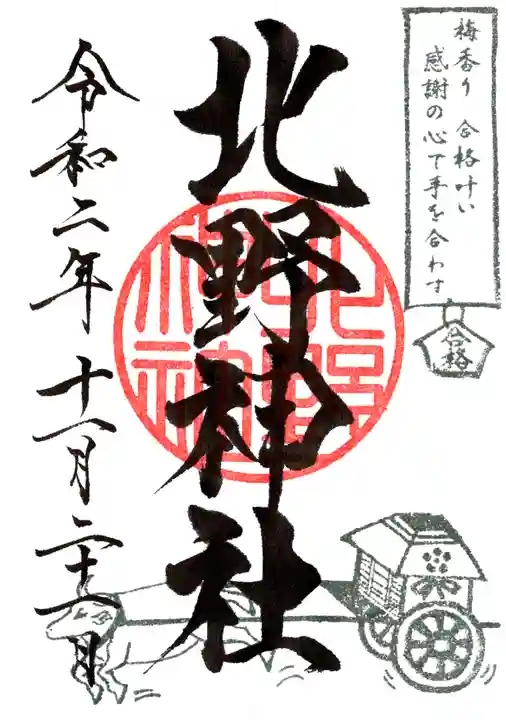 梅香り 合格叶い
感謝の心で手を合わす
合格
北野神社
北野神社
令和二年十一月二十一日